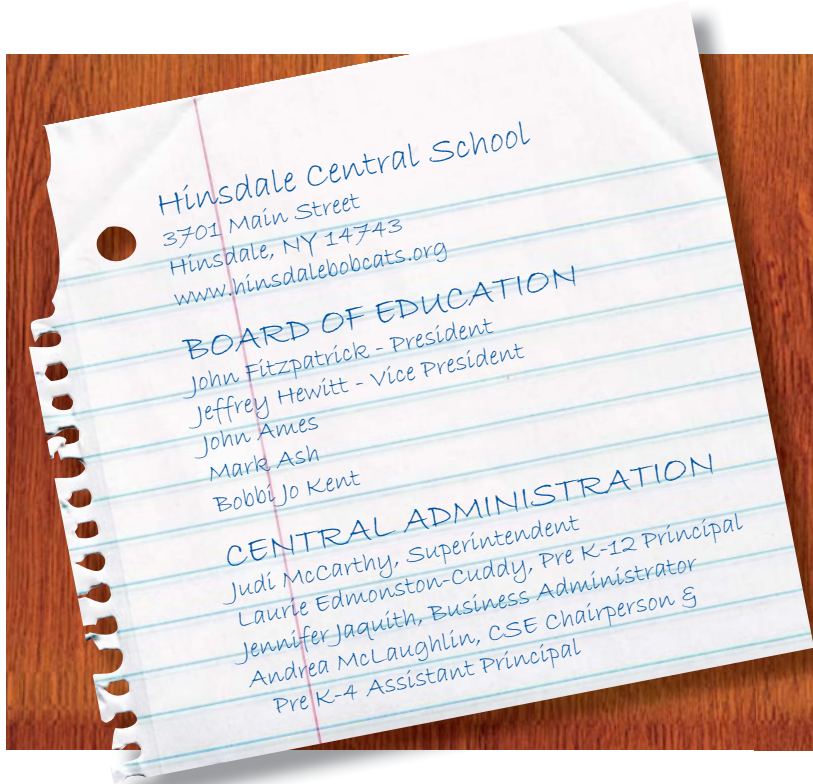 Hinsdale Central School
3701 Main Street
Hinsdale, NY 14743
www.hinsdalebobcats.org
BOARD OF EDUCATION
John Fitzpatrick - President
Jeffrey Hewitt - Vice President
John Ames
Mark Ash
Bobbi Jo Kent
CENTRAL ADMINISTRATION
Judi McCarthy, Superintendent
Laurie Edmonston-Cuddy, Pre K-12 Principal
Jennifer Jaquith, Business Administrator
Andrea McLaughlin, CSE Chairperson &
Pre K-4 Assistant Principal